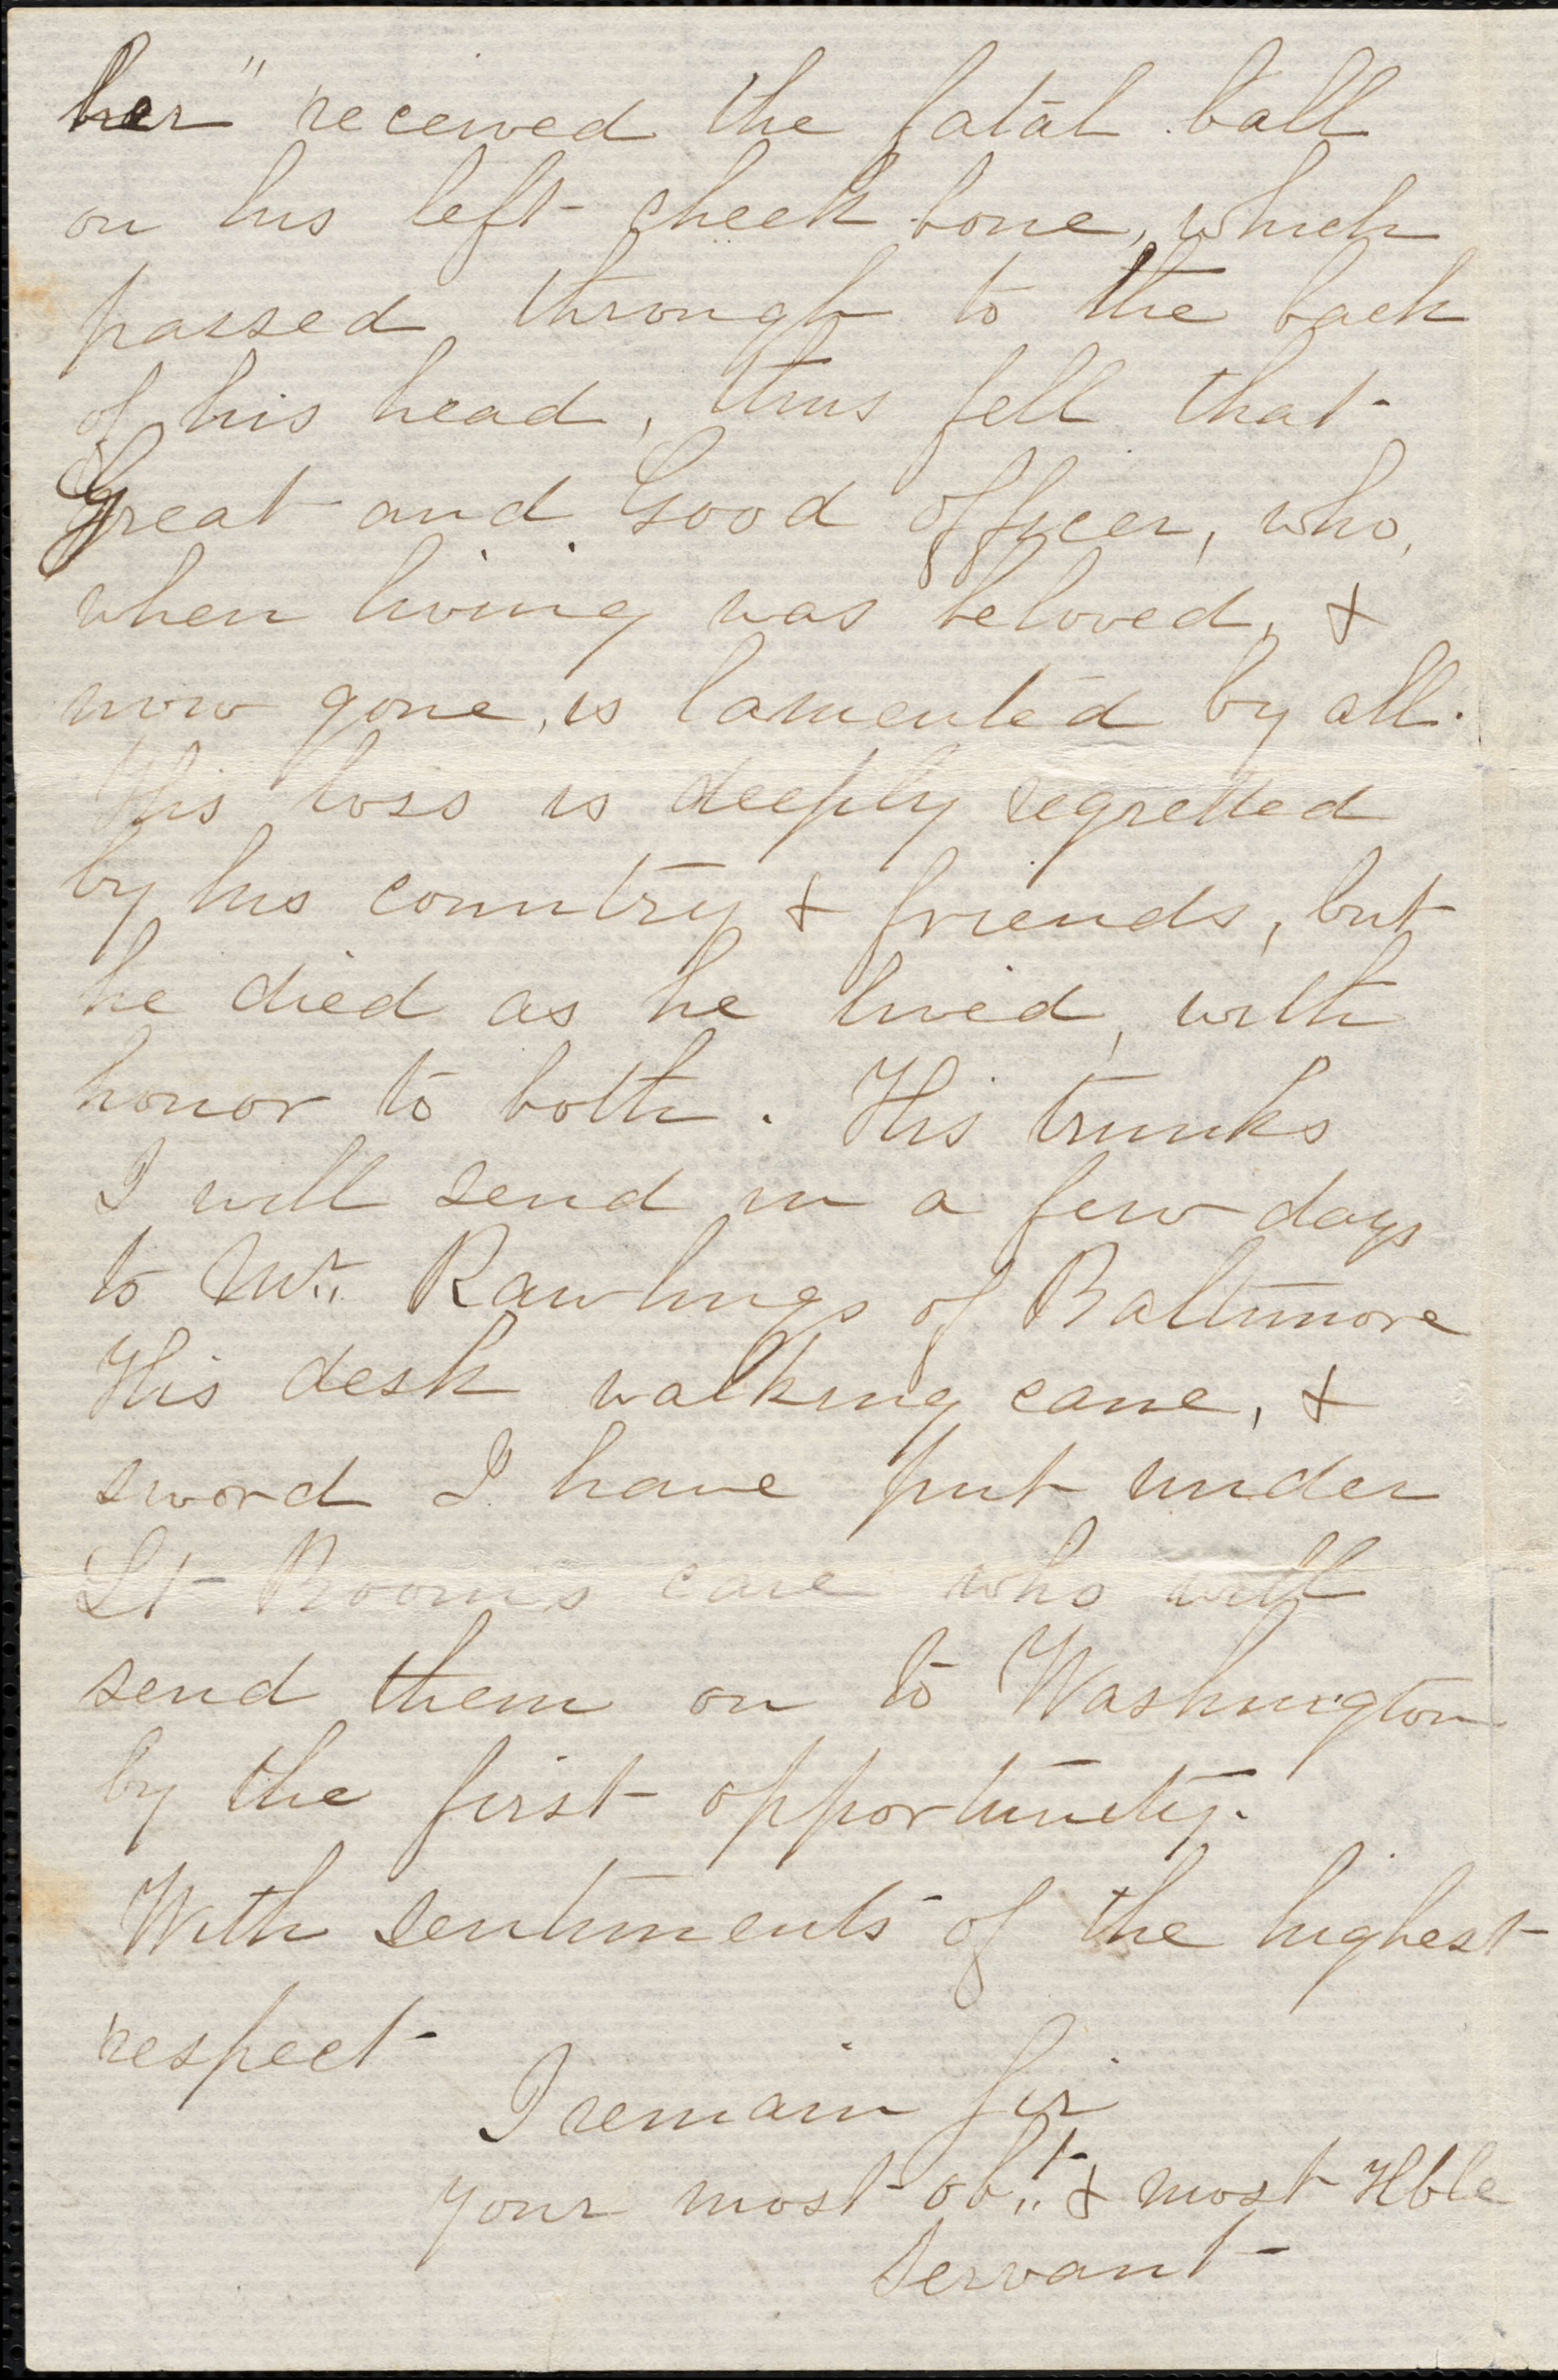 her" received the fatal ball
on his left cheek bone, which
passed through to the back
of his head, thus fell that
Great and Good officer, who,
when living was beloved, &
now gone, is lamented by all.
His loss is deeply regretted
by his country & friends, but
he died as he lived, with
honor to both. His trunks
I will send in a few days
to Mr. Rawlings of Baltimore
His desk walking cane, &
sword I have put under
Lt Broom's care who will
send them on to Washington
by the first opportunity.
With sentiments of the highest
respect
I remain Sir
your most obt. & most Hble
Servant